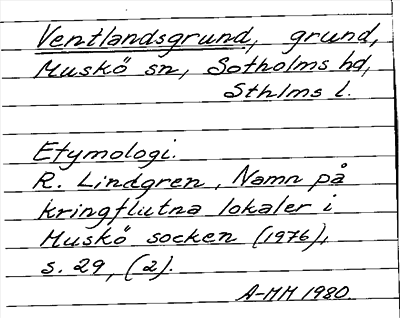 Ventlandsgrund, grund,
Muskö sn, Sotholms hd,
Sthlms l.
Etymologi.
R. Lindgren, Namn på
kringflutna lokaler i
Muskö socken (1976),
s. 29, (2).
A-MH 1980.